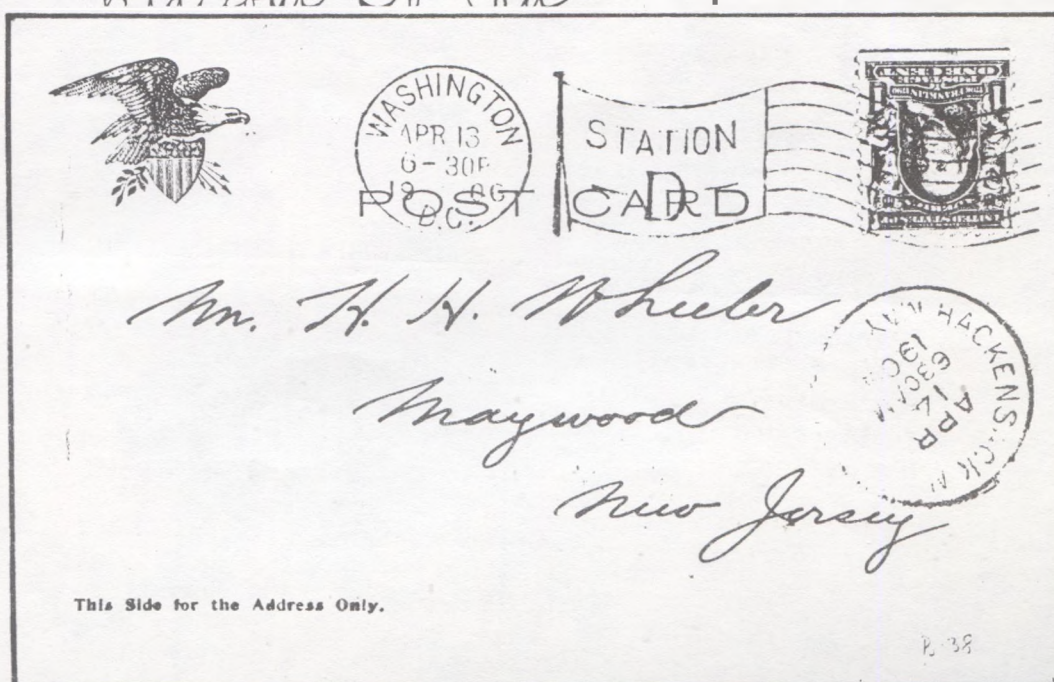 WASHINGTON
APR 13
6-30P
D.C.
STATION
D
POST CARD
ONE CENT
Mr. H. H. Wheeler
Maywood
New Jersey
HACKENSACK N.
APR
14
630AM
This Side for the Address Only.
B-38